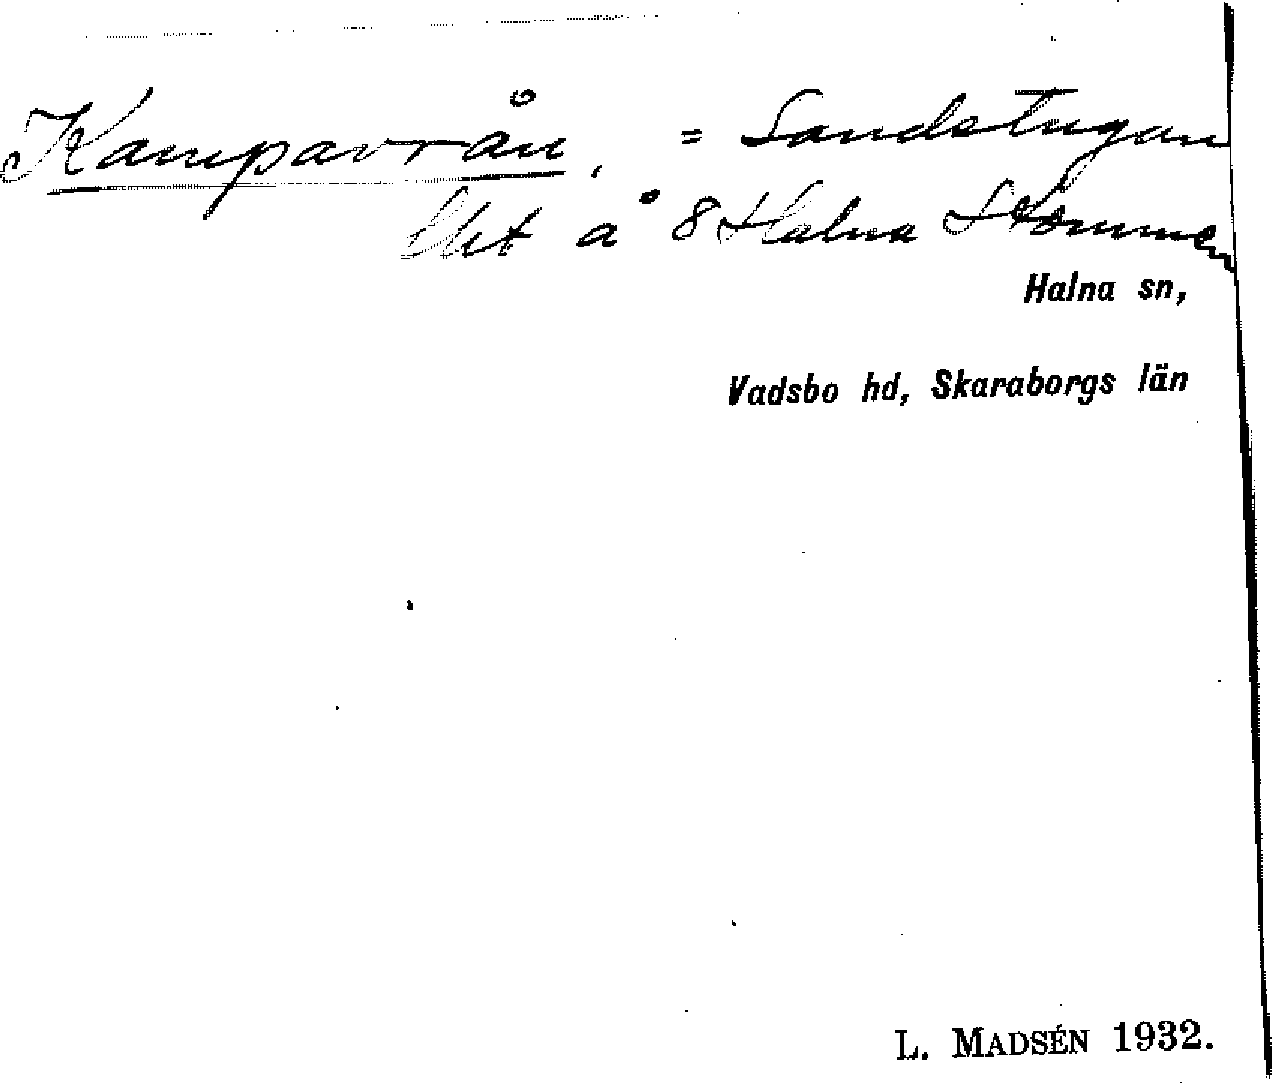 Kampavrån, = Sandstugan
lht å 8 Halna Stommen
Halna sn,
Vadsbo hd, Skaraborgs län
L. MADSÉN 1932.